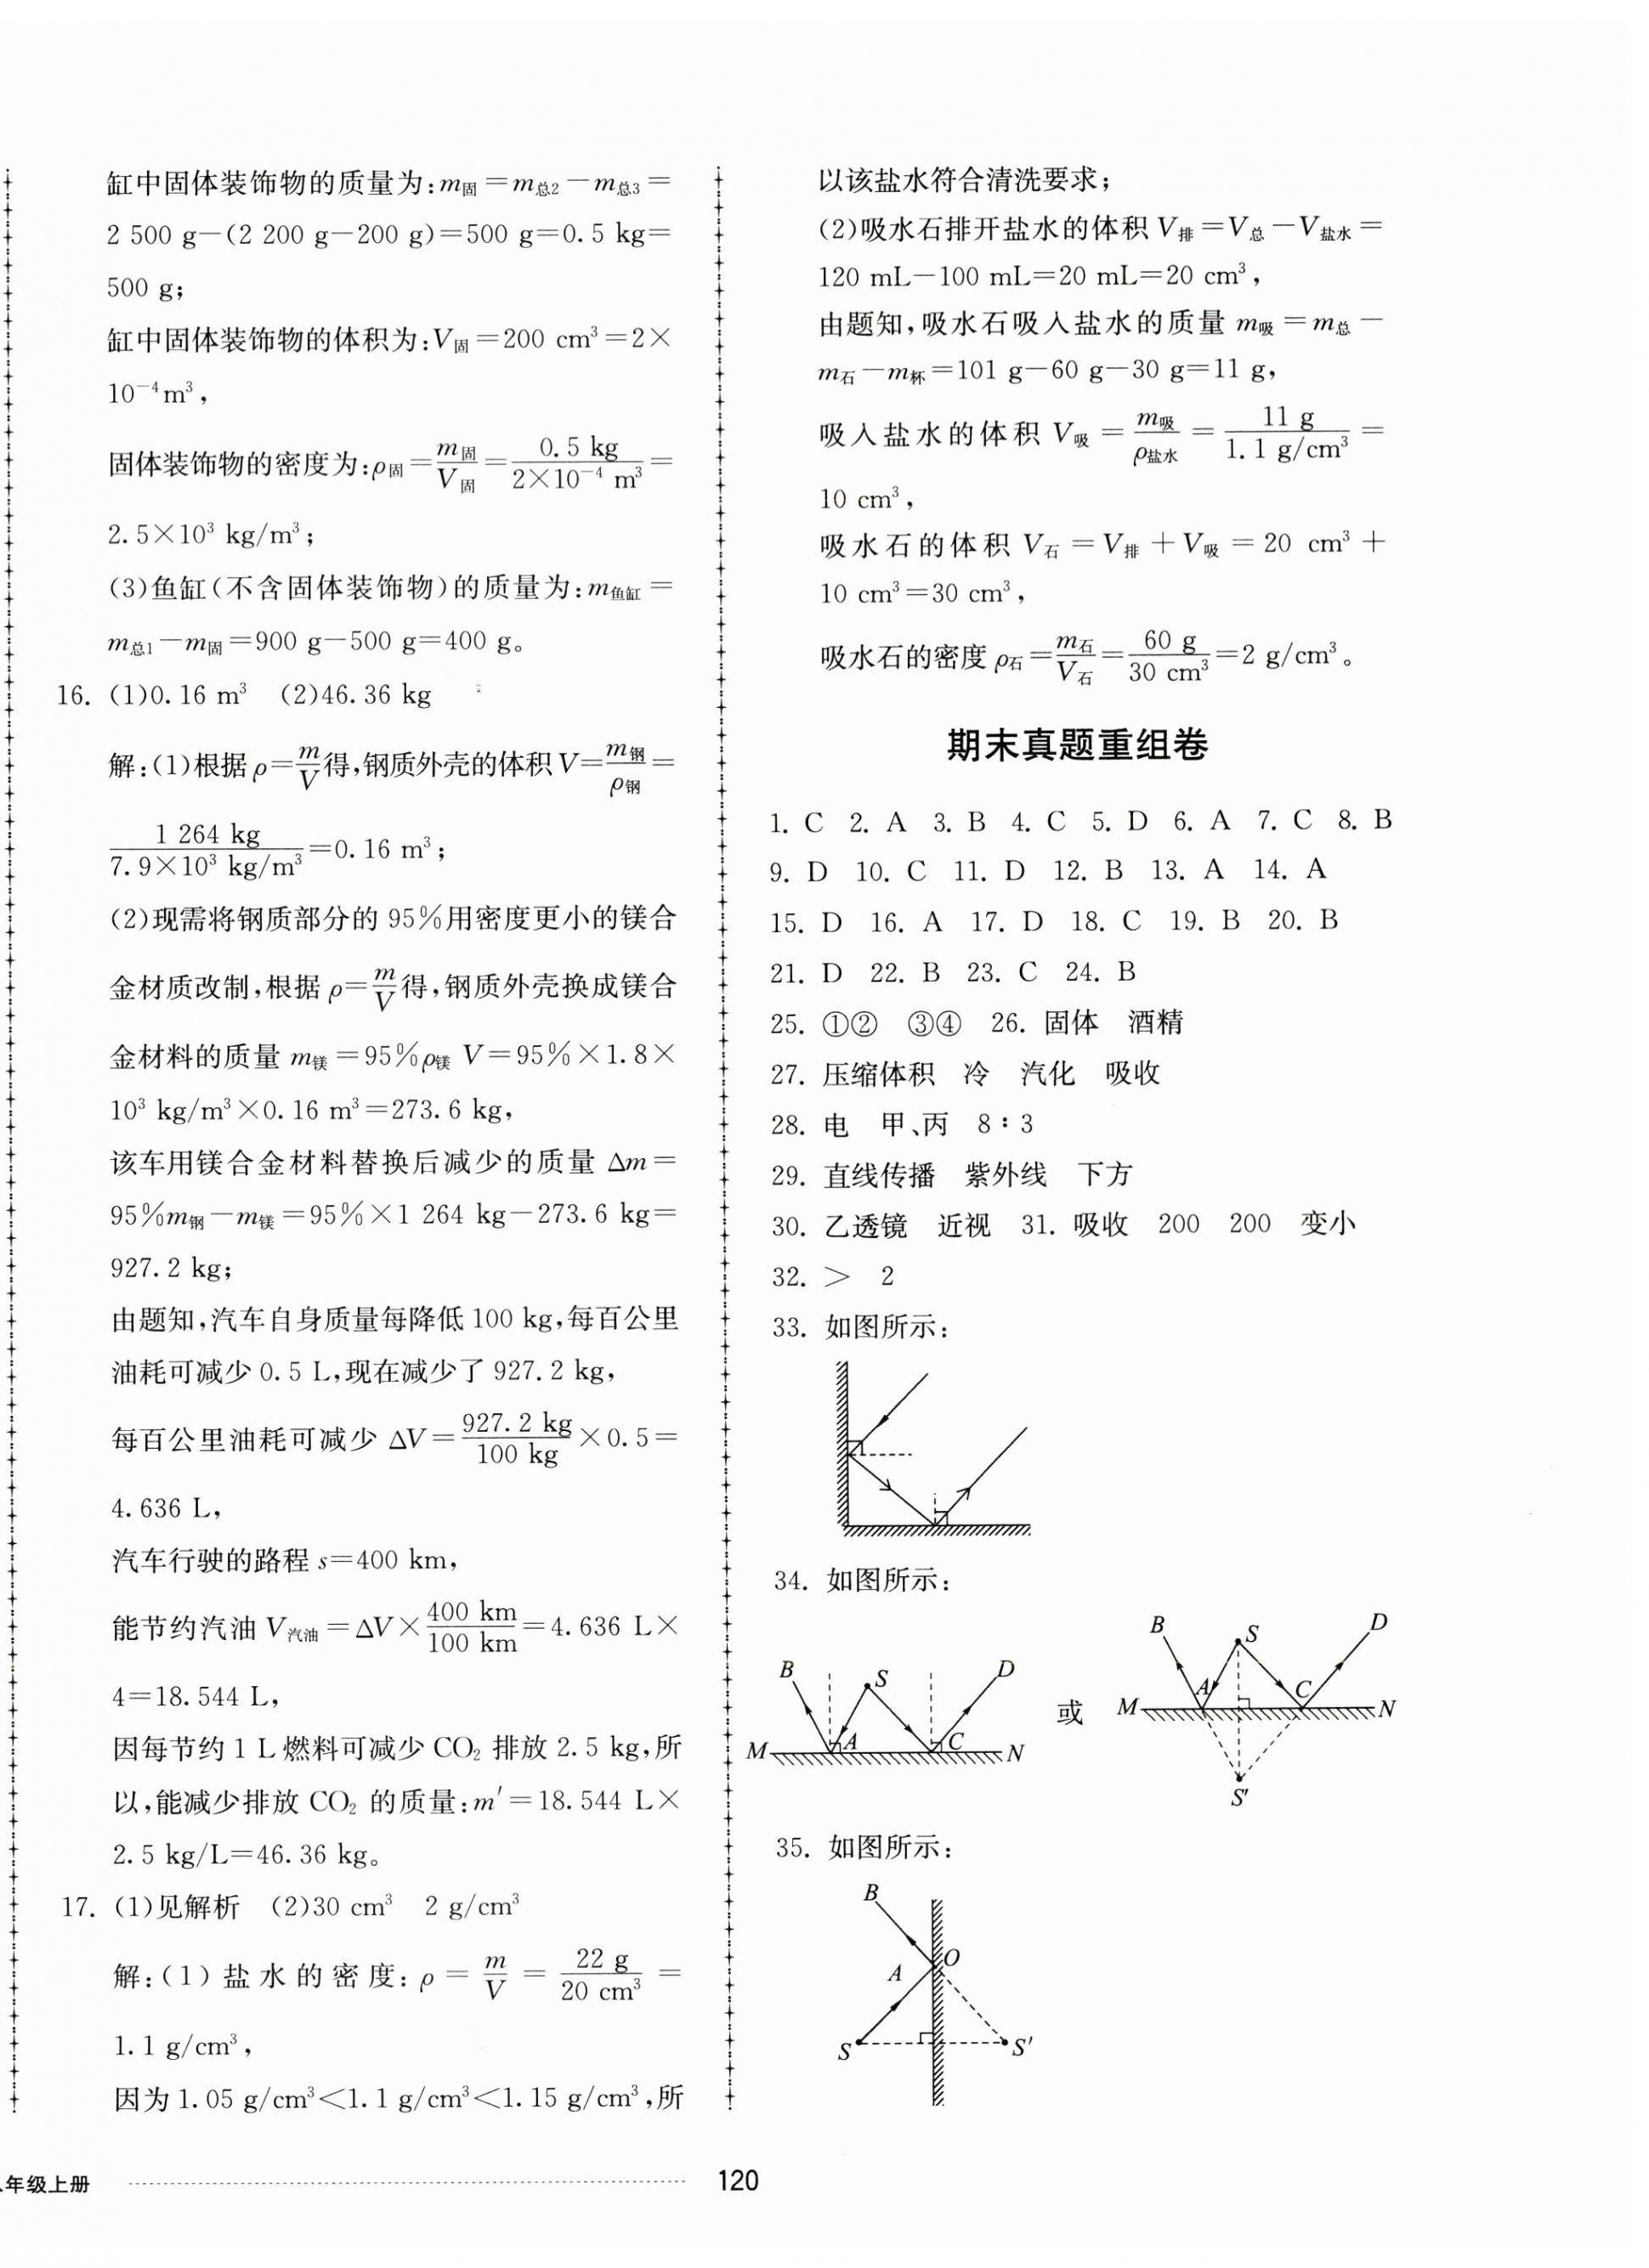 缸中固体装饰物的质量为:m固=m总2-m总3=
2 500 g-(2 200 g-200 g)=500 g=0.5 kg=
500 g;
缸中固体装饰物的体积为:V固=200 cm³=2×
10⁻⁴m³,
固体装饰物的密度为:ρ固=m固/V固=0.5 kg/2×10⁻⁴ m³=
2.5×10³ kg/m³;
(3)鱼缸(不含固体装饰物)的质量为:m鱼缸=
m总1-m固=900 g-500 g=400 g。
16. (1)0.16 m³ (2)46.36 kg
解:(1)根据ρ=m/V得,钢质外壳的体积V=m钢/ρ钢=
1 264 kg/7.9×10³ kg/m³=0.16 m³;
(2)现需将钢质部分的95%用密度更小的镁合
金材质改制,根据ρ=m/V得,钢质外壳换成镁合
金材料的质量m镁=95%ρ镁V=95%×1.8×
10³ kg/m³×0.16 m³=273.6 kg,
该车用镁合金材料替换后减少的质量Δm=
95%m钢-m镁=95%×1 264 kg-273.6 kg=
927.2 kg;
由题知,汽车自身质量每降低100 kg,每百公里
油耗可减少0.5 L,现在减少了927.2 kg,
每百公里油耗可减少ΔV=927.2 kg/100 kg×0.5=
4.636 L,
汽车行驶的路程s=400 km,
能节约汽油V汽油=ΔV×400 km/100 km=4.636 L×
4=18.544 L,
因每节约1 L燃料可减少CO₂排放2.5 kg,所
以,能减少排放CO₂的质量:m′=18.544 L×
2.5 kg/L=46.36 kg。
17. (1)见解析 (2)30 cm³ 2 g/cm³
解:(1)盐水的密度:ρ=m/V=22 g/20 cm³=
1.1 g/cm³,
因为1.05 g/cm³<1.1 g/cm³<1.15 g/cm³,所
以该盐水符合清洗要求;
(2)吸水石排开盐水的体积V排=V总-V盐水=
120 mL-100 mL=20 mL=20 cm³,
由题知,吸水石吸入盐水的质量m吸=m总-
m石-m杯=101 g-60 g-30 g=11 g,
吸入盐水的体积V吸=m吸/ρ盐水=11 g/1.1 g/cm³=
10 cm³,
吸水石的体积V石=V排+V吸=20 cm³+
10 cm³=30 cm³,
吸水石的密度ρ石=m石/V石=60 g/30 cm³=2 g/cm³。
期末真题重组卷
1. C 2. A 3. B 4. C 5. D 6. A 7. C 8. B
9. D 10. C 11. D 12. B 13. A 14. A
15. D 16. A 17. D 18. C 19. B 20. B
21. D 22. B 23. C 24. B
25. ①② ③④ 26. 固体 酒精
27. 压缩体积 冷 汽化 吸收
28. 电 甲、丙 8:3
29. 直线传播 紫外线 下方
30. 乙透镜 近视 31. 吸收 200 200 变小
32. > 2
33. 如图所示:
34. 如图所示:
B S D
M A C N
或
B S D
M A C N
S′
35. 如图所示:
B
O
A
S S′
年级上册
120